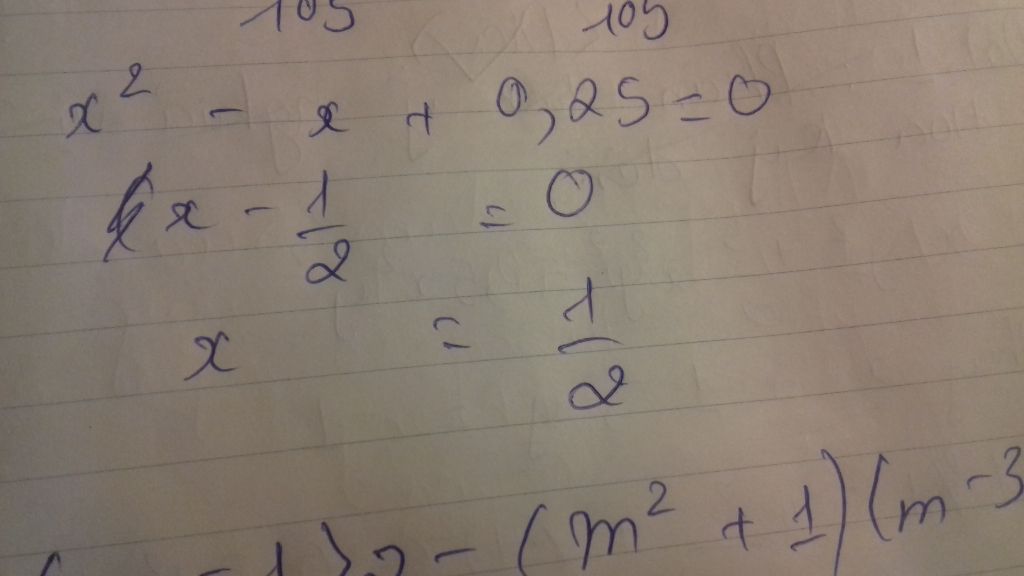 105 105
x² - x + 0,25 = 0
x - 1/2 = 0
x = 1/2
- 1) 2 - (m² + 1) (m - 3